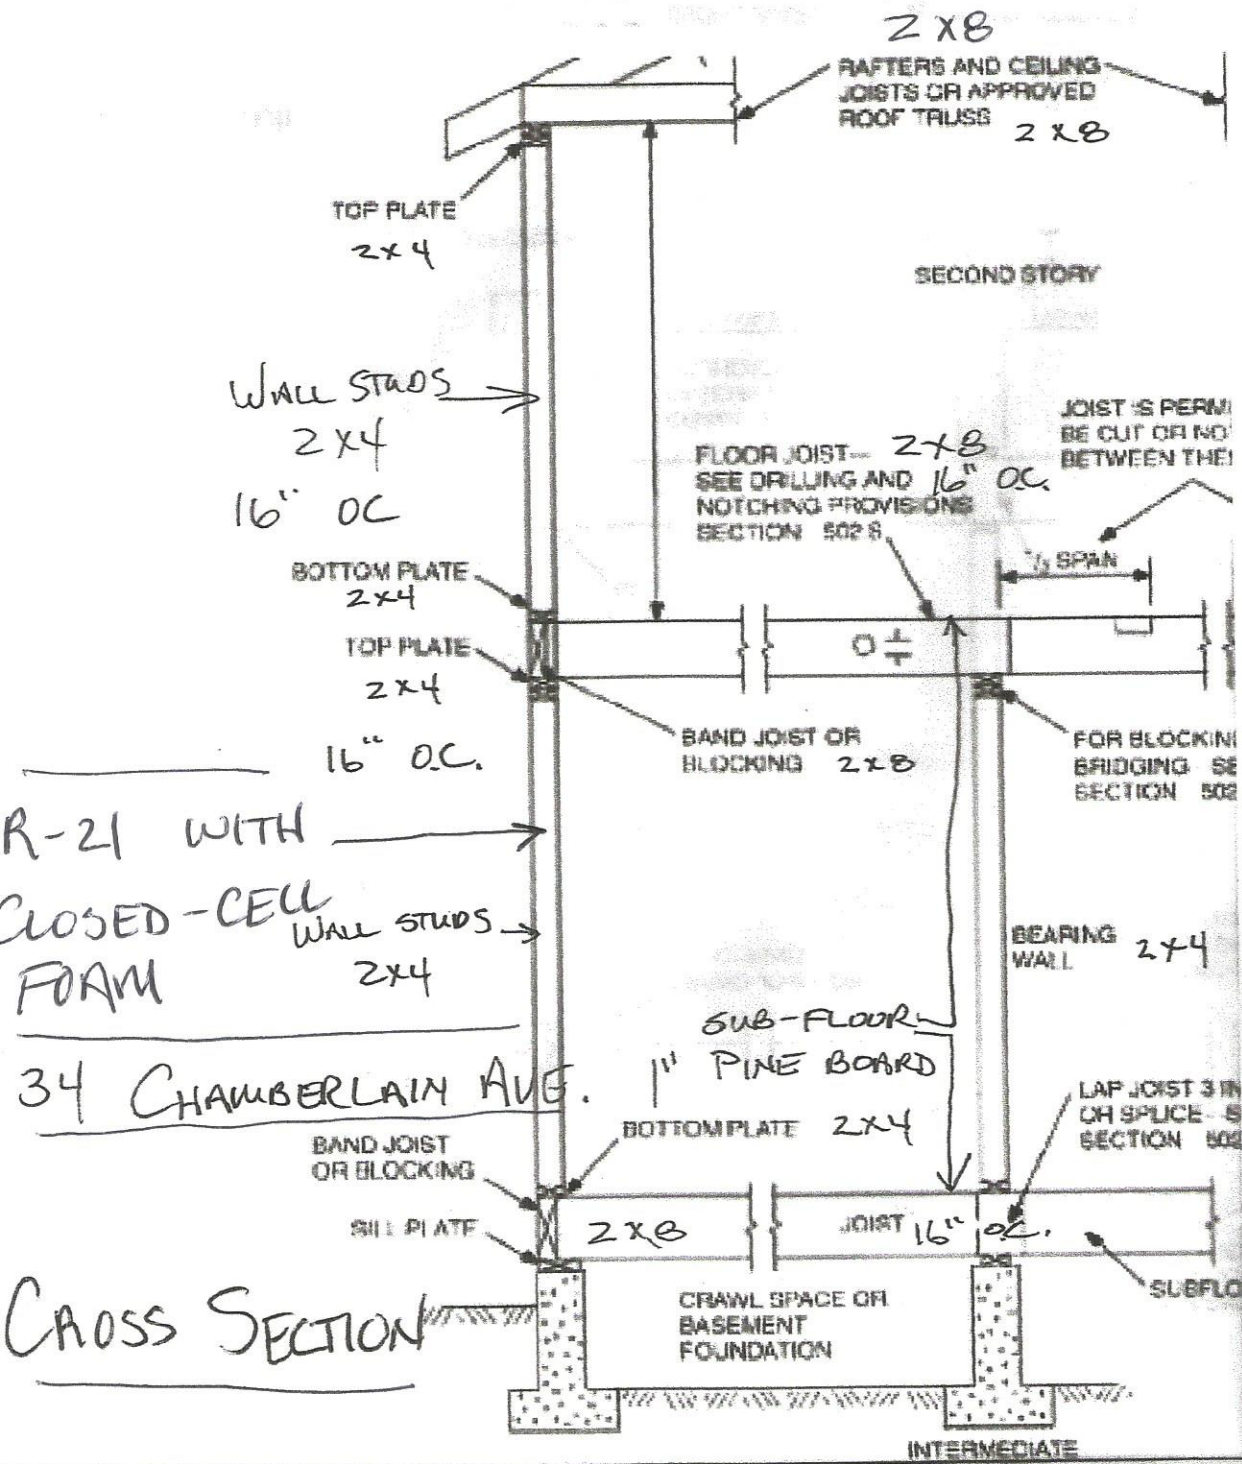 2 x 8
RAFTERS AND CEILING
JOISTS OR APPROVED
ROOF TRUSS 2 x 8
TOP PLATE
2 x 4
SECOND STORY
WALL STUDS
2 x 4
16" OC
JOIST IS PERMI
BE CUT OR NO
BETWEEN THE
FLOOR JOIST- 2 x 8
SEE DRILLING AND 16" O.C.
NOTCHING PROVISIONS
SECTION 502.8
1/3 SPAN
BOTTOM PLATE
2 x 4
TOP PLATE
2 x 4
16" O.C.
BAND JOIST OR
BLOCKING 2 x 8
FOR BLOCKIN
BRIDGING SE
SECTION 502
R-21 WITH
CLOSED-CELL
FOAM
WALL STUDS
2 x 4
BEARING
WALL 2 x 4
SUB-FLOOR
1" PINE BOARD
34 CHAMBERLAIN AVE.
BOTTOM PLATE 2 x 4
LAP JOIST 3 IN
OR SPLICE- S
SECTION 502
BAND JOIST
OR BLOCKING
SILL PLATE
2 x 8
JOIST 16" O.C.
SUBFLO
CROSS SECTION
CRAWL SPACE OR
BASEMENT
FOUNDATION
INTERMEDIATE